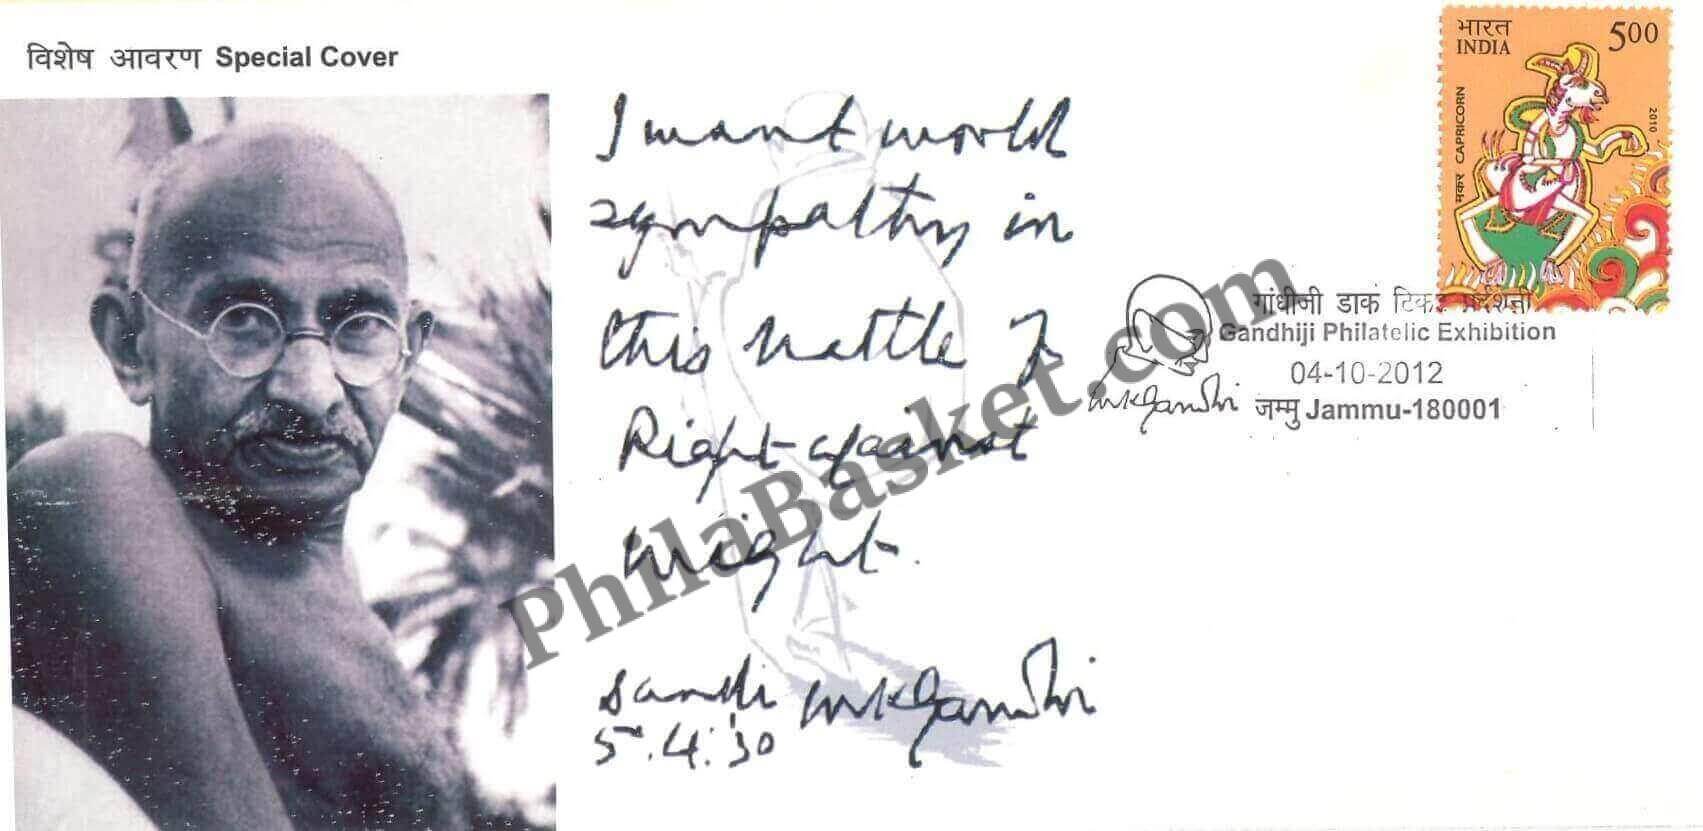 विशेष आवरण Special Cover
I want world
sympathy in
this battle of
Right against
might.
Dandi MKGandhi
5.4.'30
भारत
INDIA
500
मकर CAPRICORN
2010
गांधीजी डाक टिकट प्रदर्शनी
Gandhiji Philatelic Exhibition
04-10-2012
MKGandhi जम्मु Jammu-180001
PhilaBasket.com